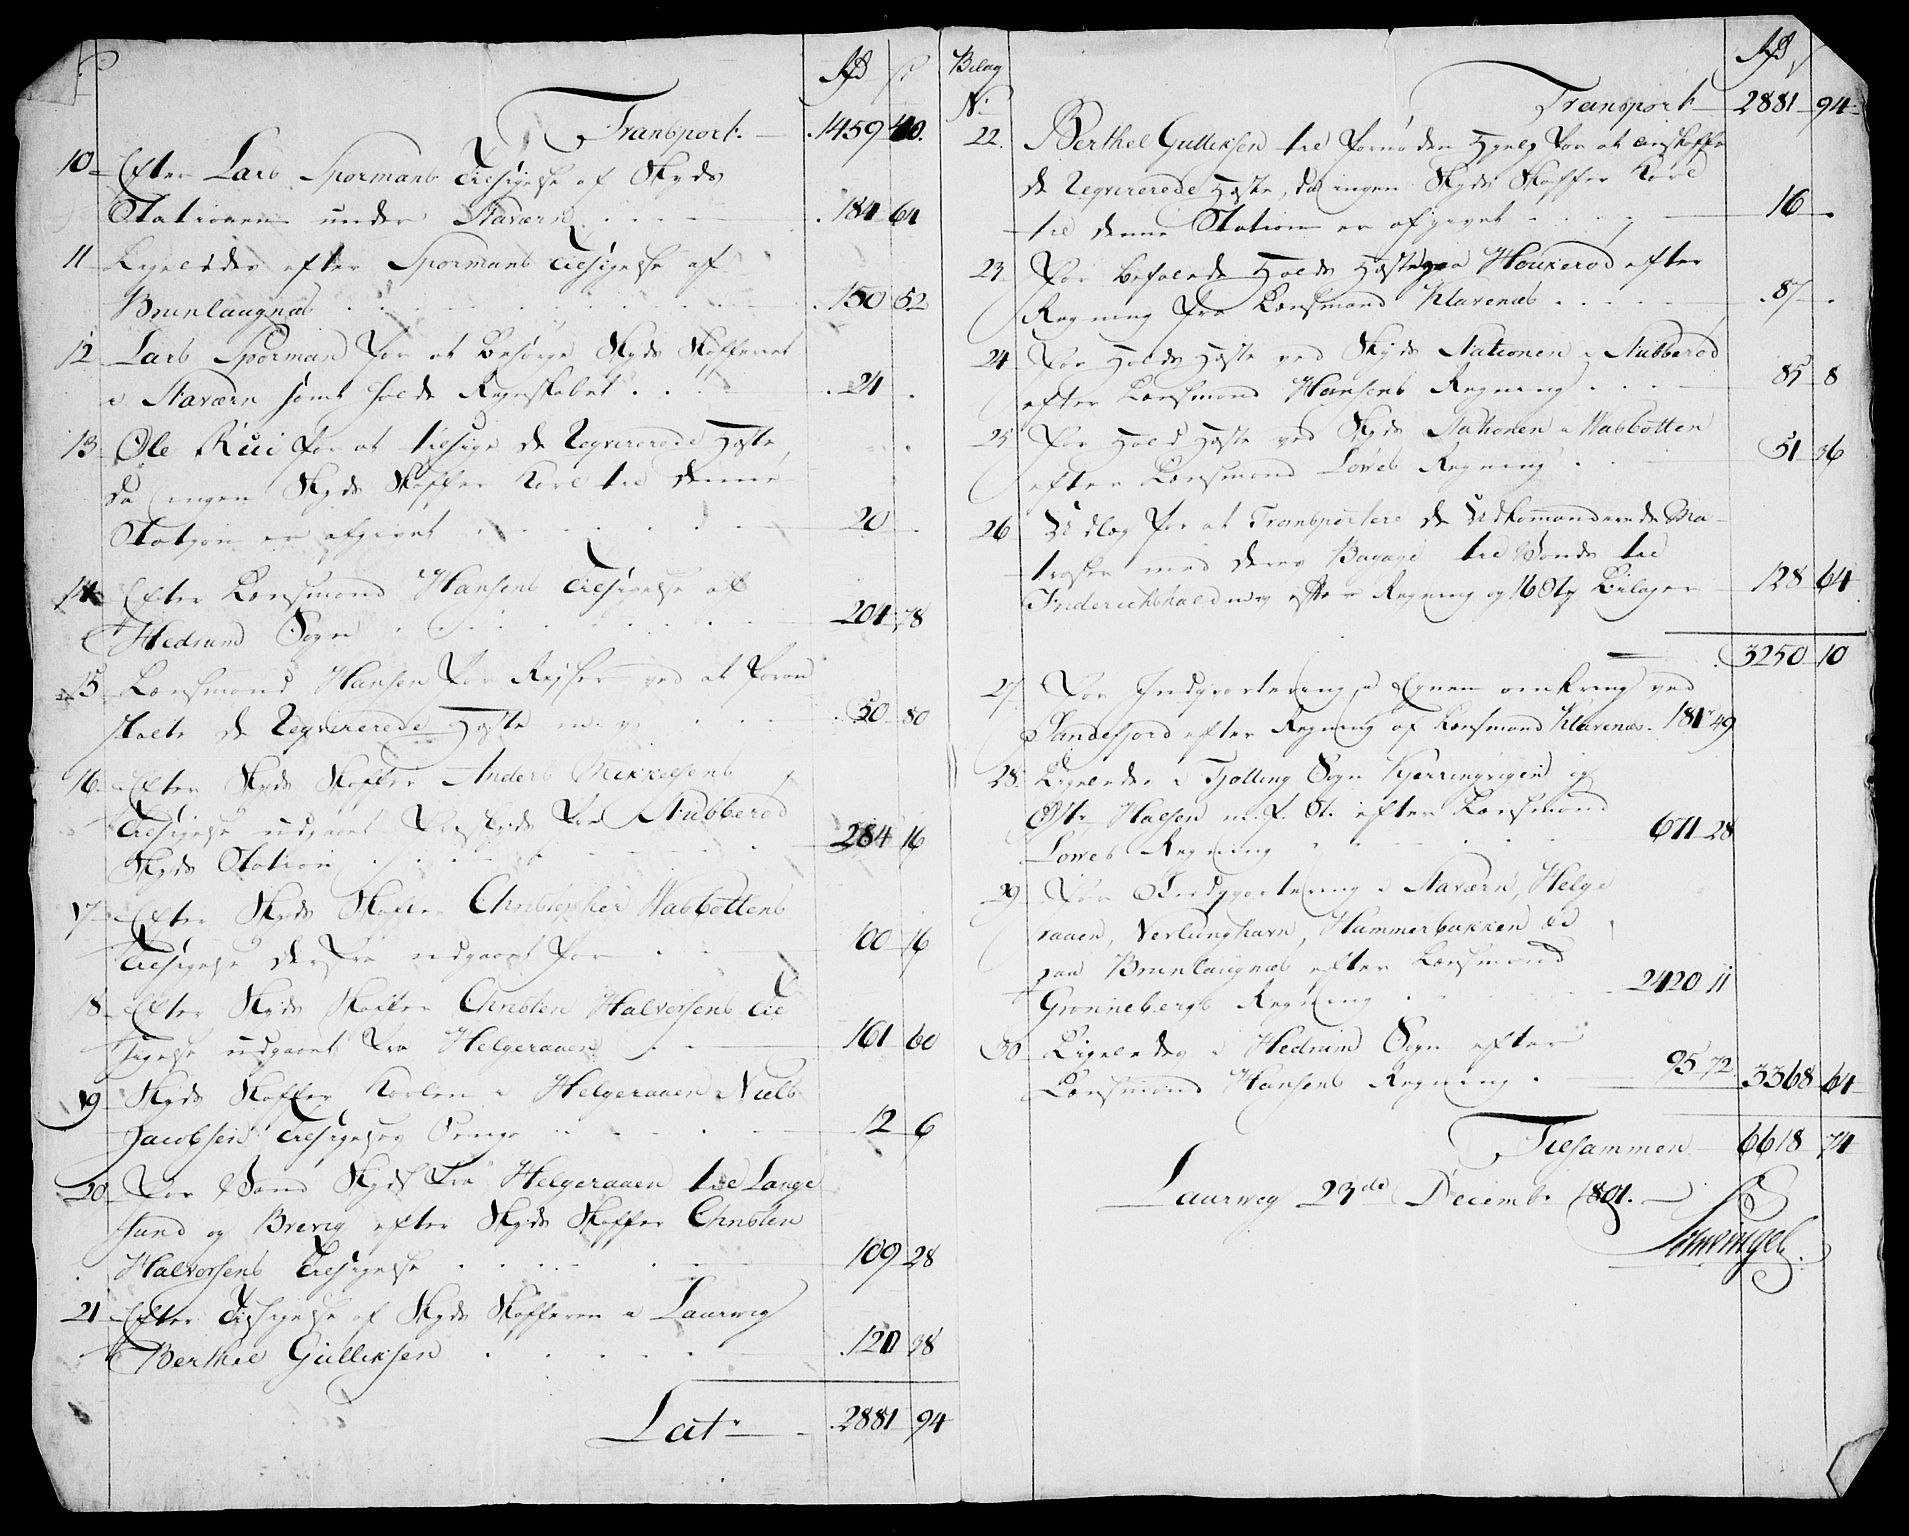 Rd s
Transport: 1459 40.
10 Efter Lars Spormans Tilsigelse af Skyds
Stationen under Staværn 184 64
11 Ligeledes efter Spormans Tilsigelse af
Brunlaugnæs 150 52
12 Lars Sporman for at besørge Skyds Skafferiet
i Staværn samt holde Regnskabet 24 .
13 Ole Rui for at tilsige de Reqvirerede Hæste,
da ingen Skyds Skaffer Karl til denne
Station er afgivet 20
14 Efter Lænsmand Hansens Tilsigelse af
Hedrum Sogn 204 78
15 Lænsmand Hansen for Rejser ved at foran
stalte de Reqvirerede Hæste m. v. 50 80
16 Efter Skyds Skaffer Anders Mikkelsens
Tilsigelse udgaaet Skyds fra Stubberød
Skyds Station 284 16
17 Efter Skyds Skaffer Christopher Wabbottens
Tilsigelse derfra udgaaet for 100 16
18 Efter Skyds Skaffer Christen Halvorsens Til
sigelse udgaaet fra Helgeraaen 161 60
19 Skyds Skaffer Karlen i Helgeraaen Niels
Jacobsen Tilsigelses Penge 12 6
20 For Vand Skyds fra Helgeraaen til Lange
sund og Brevig efter Skyds Skaffer Christen
Halvorsens Tilsigelse 109 28
21 Efter Tilsigelse af Skyds Skafferen i Laurwig
Berthel Gulliksen 120 38
Lat: 2881 94
Bilag
N: Rd s
Transport 2881 94
22. Berthel Gulliksen til fornøden Hjelp for at anskaffe
de Reqvirerede Hæste, da ingen Skyds Skaffer Karl
til denne Station er afgivet 16 .
23 For befalede Holds Hæste paa Haukerød efter
Regning fra Lænsmand Klavenæs 87 .
24 For Holds Hæste ved Skyds Stationen i Stubberød
efter Lænsmand Hansens Regning 85 8
25 For Hold Hæste ved Skyds Stationen i Wabbotten
efter Lænsmand Løwes Regning 51 36
26 Udlæg for at Transportere de Udkomanderede Ma-
troser med deres Bagage til Vands til
Friderichshald m. v. efter Regning og 16 St. Bilager 128 64
3250 10
27 For Indqvartering i Egnen omkring ved
Sandefjord efter Regning af Lænsmand Klavenæs. 181 49
28. Ligeledes i Tjølling Sogn Kjerringvigen og
Østr Halsen m. f. St. efter Lænsmand
Løwes Regning 671 28
29 For Indqvartering i Staværn, Helge
raaen, Nevlunghavn, Hummerbakken &c
paa Brunlaugnæs efter Lænsmand
Grønnebergs Regning 2420 11
30 Ligeledes i Hedrum Sogn efter
Lænsmand Hansens Regning 95 72 3368 64
Tilsammen 6618 74
Laurwig 23de Decembr 1801.